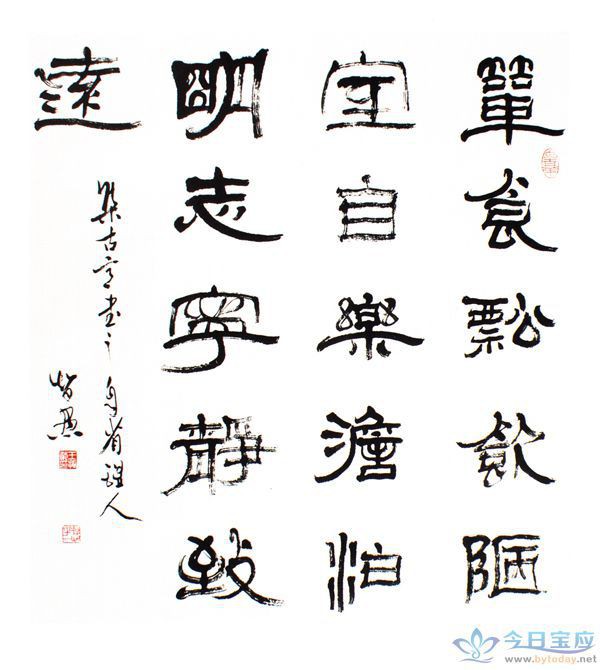 簞食瓢飲陋
室自樂澹泊
明志寧靜致
遠
集古言书之自省醒人
智愚
今日宝应
www.bytoday.net